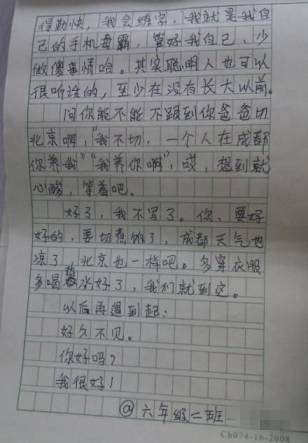 得勤快，我会练字，我就是我自
己的手机毒霸，管好我自己，少
做傻事情哈。其实聪明人也可以
很听话的，至少在没有长大以前。
问你能不能不跟到你爸爸切
北京啊，“我不切，一个人在成都
你养我”“我养你啊”，哎，想到就
心酸，算着吧。
好了，我不写了。你，要好
好的，要切惹你了，成都天气也
凉了，北京也一样吧。多穿衣服
多喝热水好了，我们就到这。
以后再遇到起：
好久不见。
你好吗？
我很好！
@六年级二班